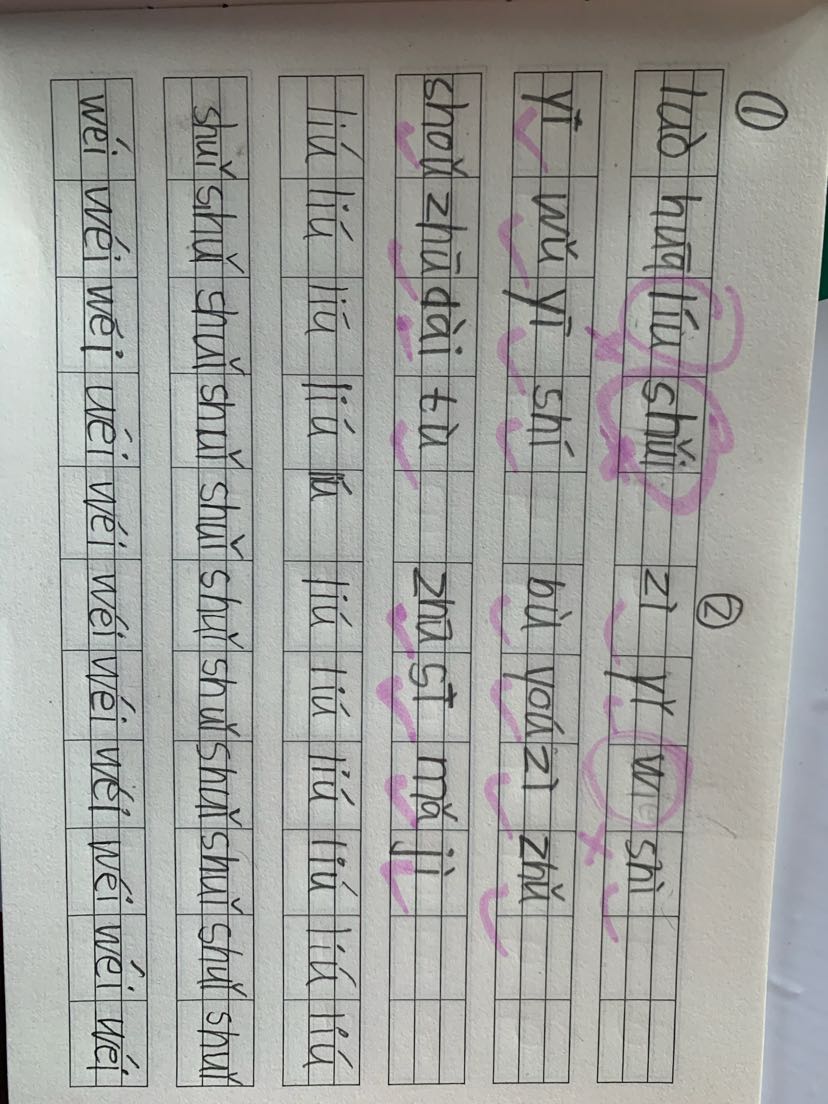 ① ②
luò huā liú shuǐ zì yǐ wé shì
yī wǔ yī shí bù yoú zì zhǔ
shoǔ zhū dài tù zhū sī mǎ jì
liú liú liú liú liú liú liú liú liú liú
shuǐ shuǐ shuǐ shuǐ shuǐ shuǐ shuǐ shuǐ shuǐ shuǐ shuǐ
wéi wéi wéi wéi wéi wéi wéi wéi wéi wéi wéi